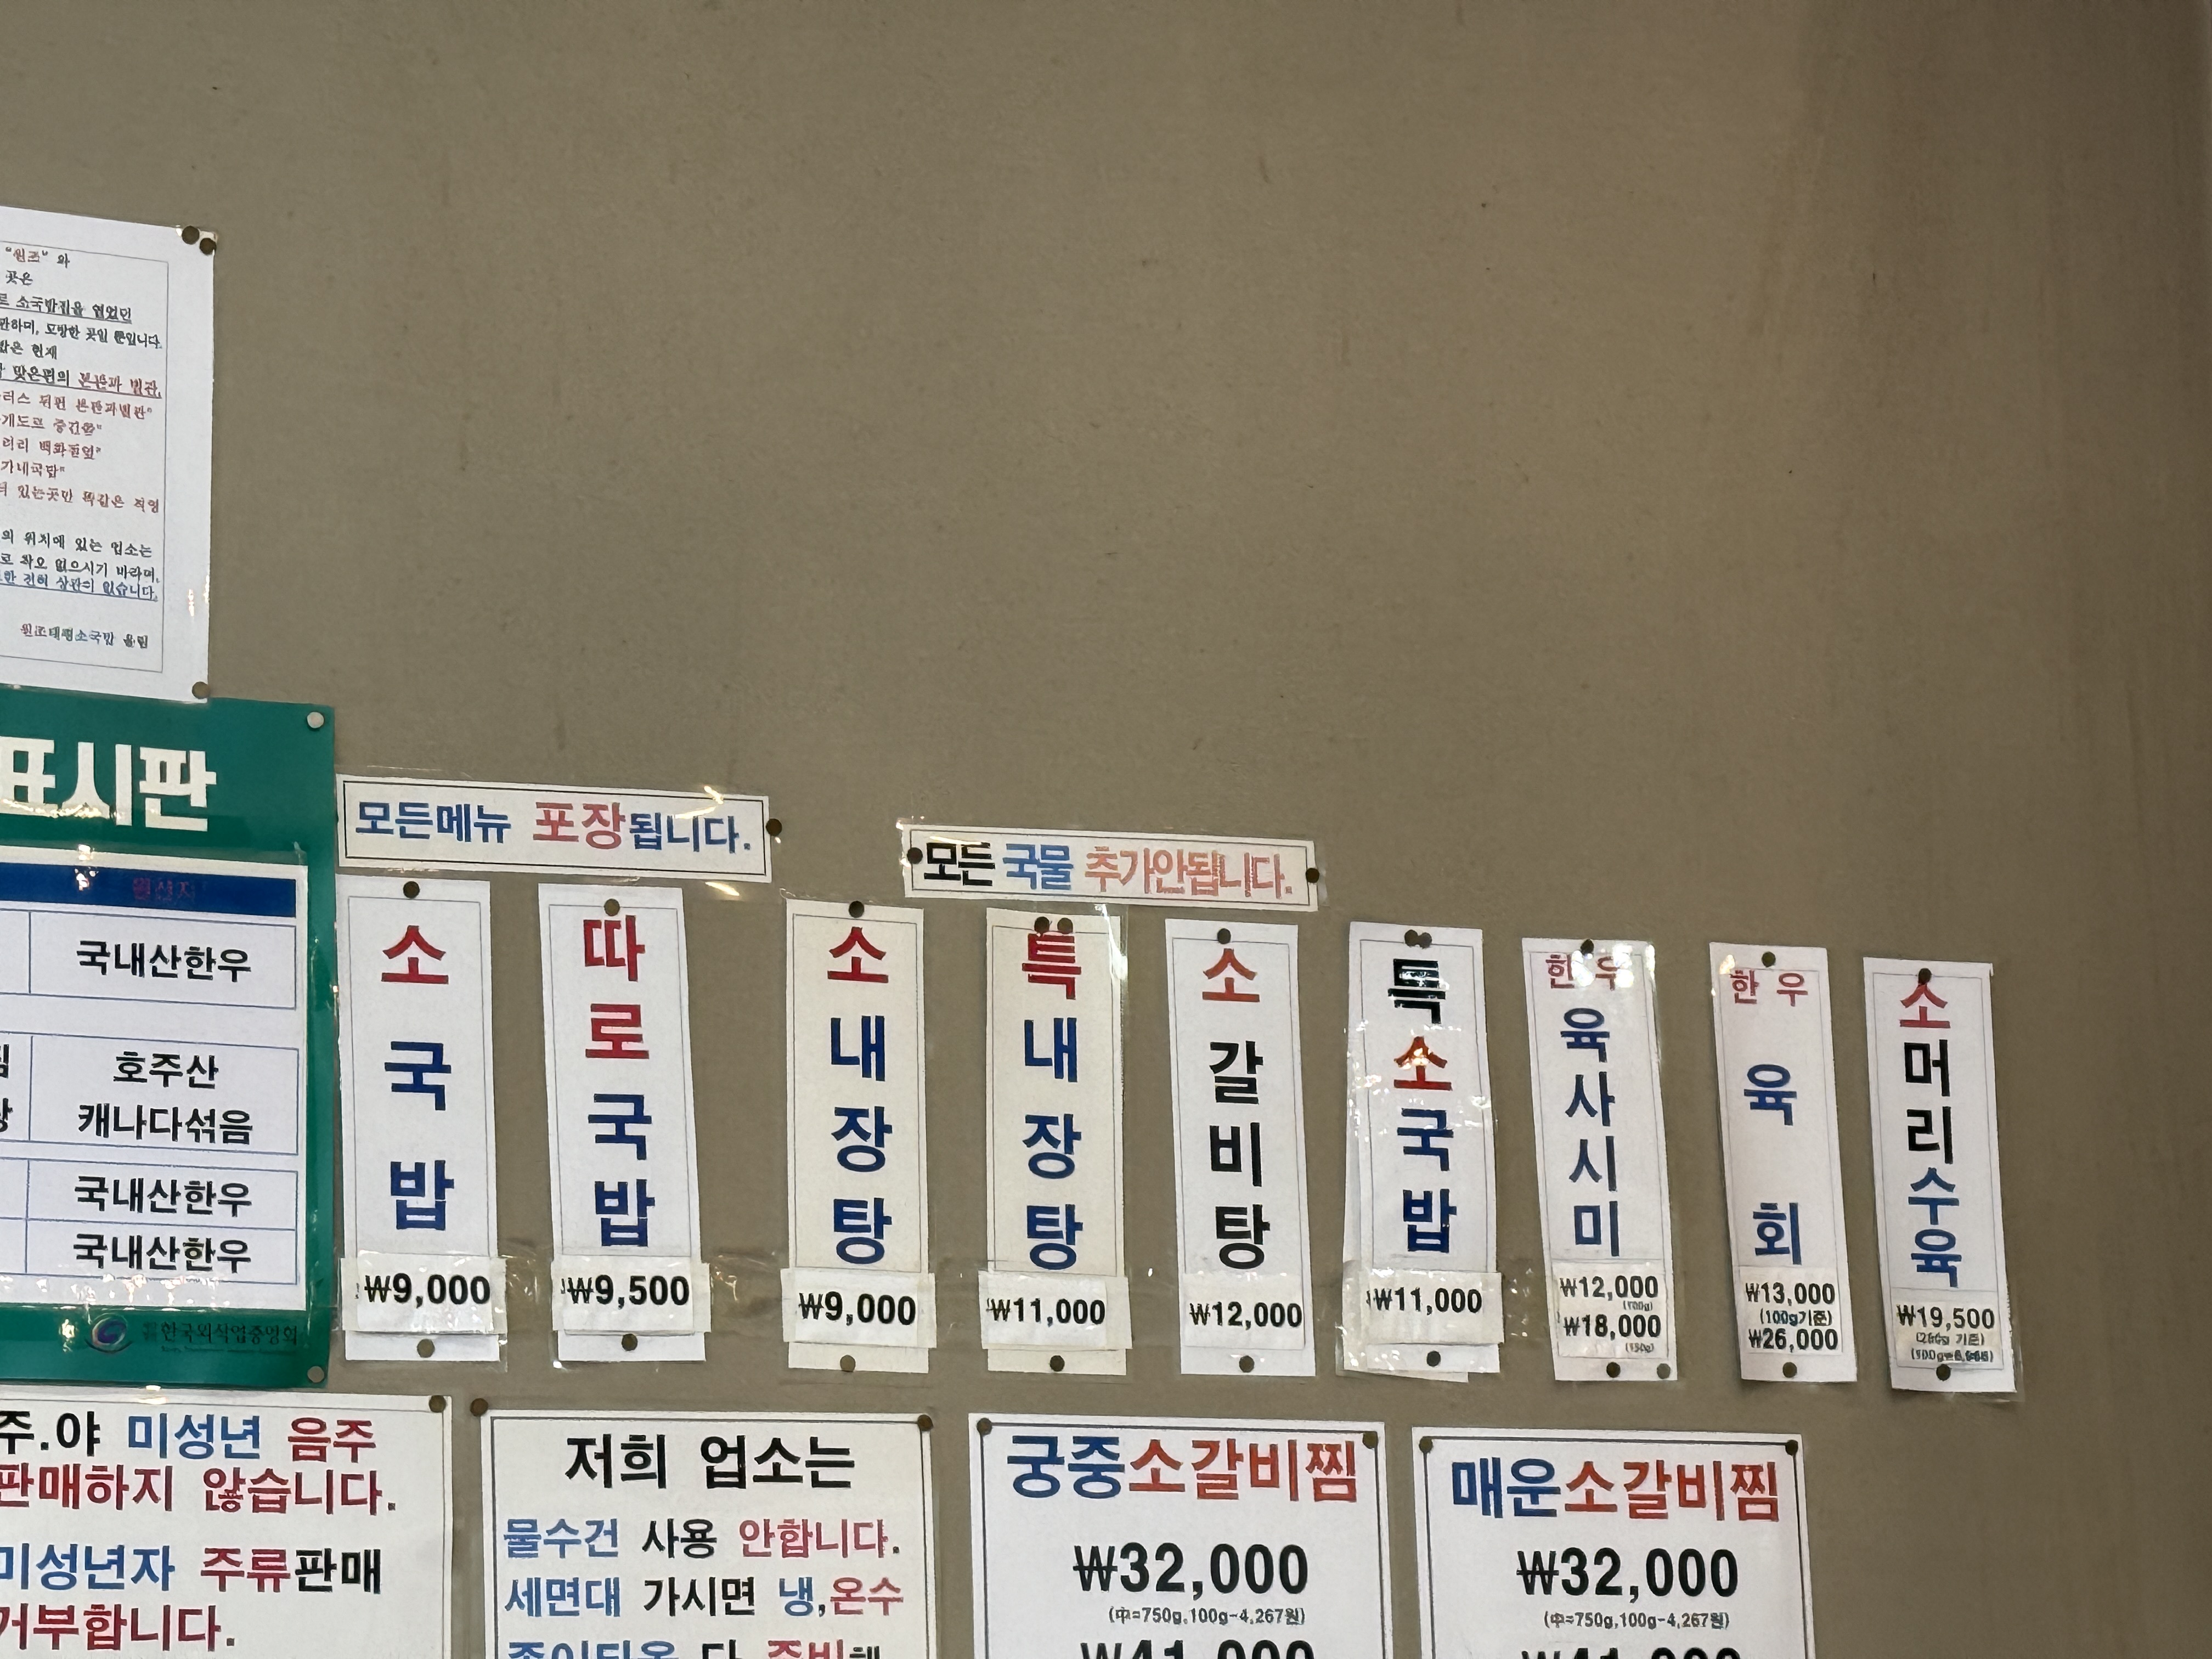 "원조" 와
곳은
소국밥집을 열었던
판하며, 모방한 곳일 뿐입니다.
밥은 현재
맞은편의 본관과 별관,
러스 뒤편 본관과별관"
가네국밥"
있는곳만 똑같은 직영
의 위치에 있는 업소는
로 착오 없으시기 바라며,
한 전혀 상관이 없습니다.
원조태평소국밥 올림
표시판
원산지
국내산한우
호주산
캐나다섞음
국내산한우
국내산한우
한국외식업중앙회
모든메뉴 포장됩니다.
모든 국물 추가안됩니다.
소국밥
₩9,000
따로국밥
₩9,500
소내장탕
₩9,000
특내장탕
₩11,000
소갈비탕
₩12,000
특소국밥
₩11,000
한우
육사시미
₩12,000
(100g)
₩18,000
(150g)
한우
육회
₩13,000
(100g기준)
₩26,000
소머리수육
₩19,500
주.야 미성년 음주
판매하지 않습니다.
미성년자 주류판매
거부합니다.
저희 업소는
물수건 사용 안합니다.
세면대 가시면 냉,온수
궁중소갈비찜
₩32,000
(中=750g,100g-4,267원)
₩41,000
매운소갈비찜
₩32,000
(中=750g,100g-4,267원)
₩41,000